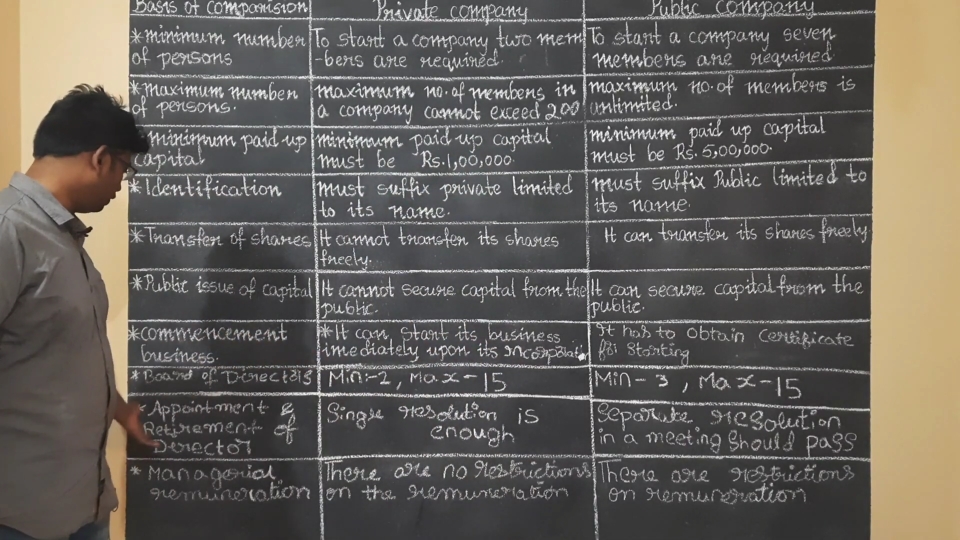 Basis of comparision
Private company
Public company
*minimum number
of persons
To start a company two mem
-bers are required.
To start a company seven
members are required
*maximum number
of persons.
maximum no. of members in
a company cannot exceed 200
maximum no. of members is
unlimited.
minimum paid up
capital
minimum paid up capital
must be Rs.1,00,000.
minimum paid up capital
must be Rs. 5,00,000.
*Identification
must suffix private limited
to its name.
must suffix Public limited to
its name.
*Transfer of shares
It cannot transfer its shares
freely.
It can transfer its shares freely
*Public issue of capital
It cannot secure capital from the
public.
It can secure capital from the
public.
*commencement
business.
*It can start its business
imediately upon its Incorporati
It has to obtain certificate
for starting
*Board of Directors
Min:-2, Max-15
Min-3, Max-15
*Appointment &
Retirement of
Director
Single resolution is
enough
Separate resolution
in a meeting should pass
* Managerial
remuneration
There are no restrictions
on the remuneration
There are restrictions
on remuneration